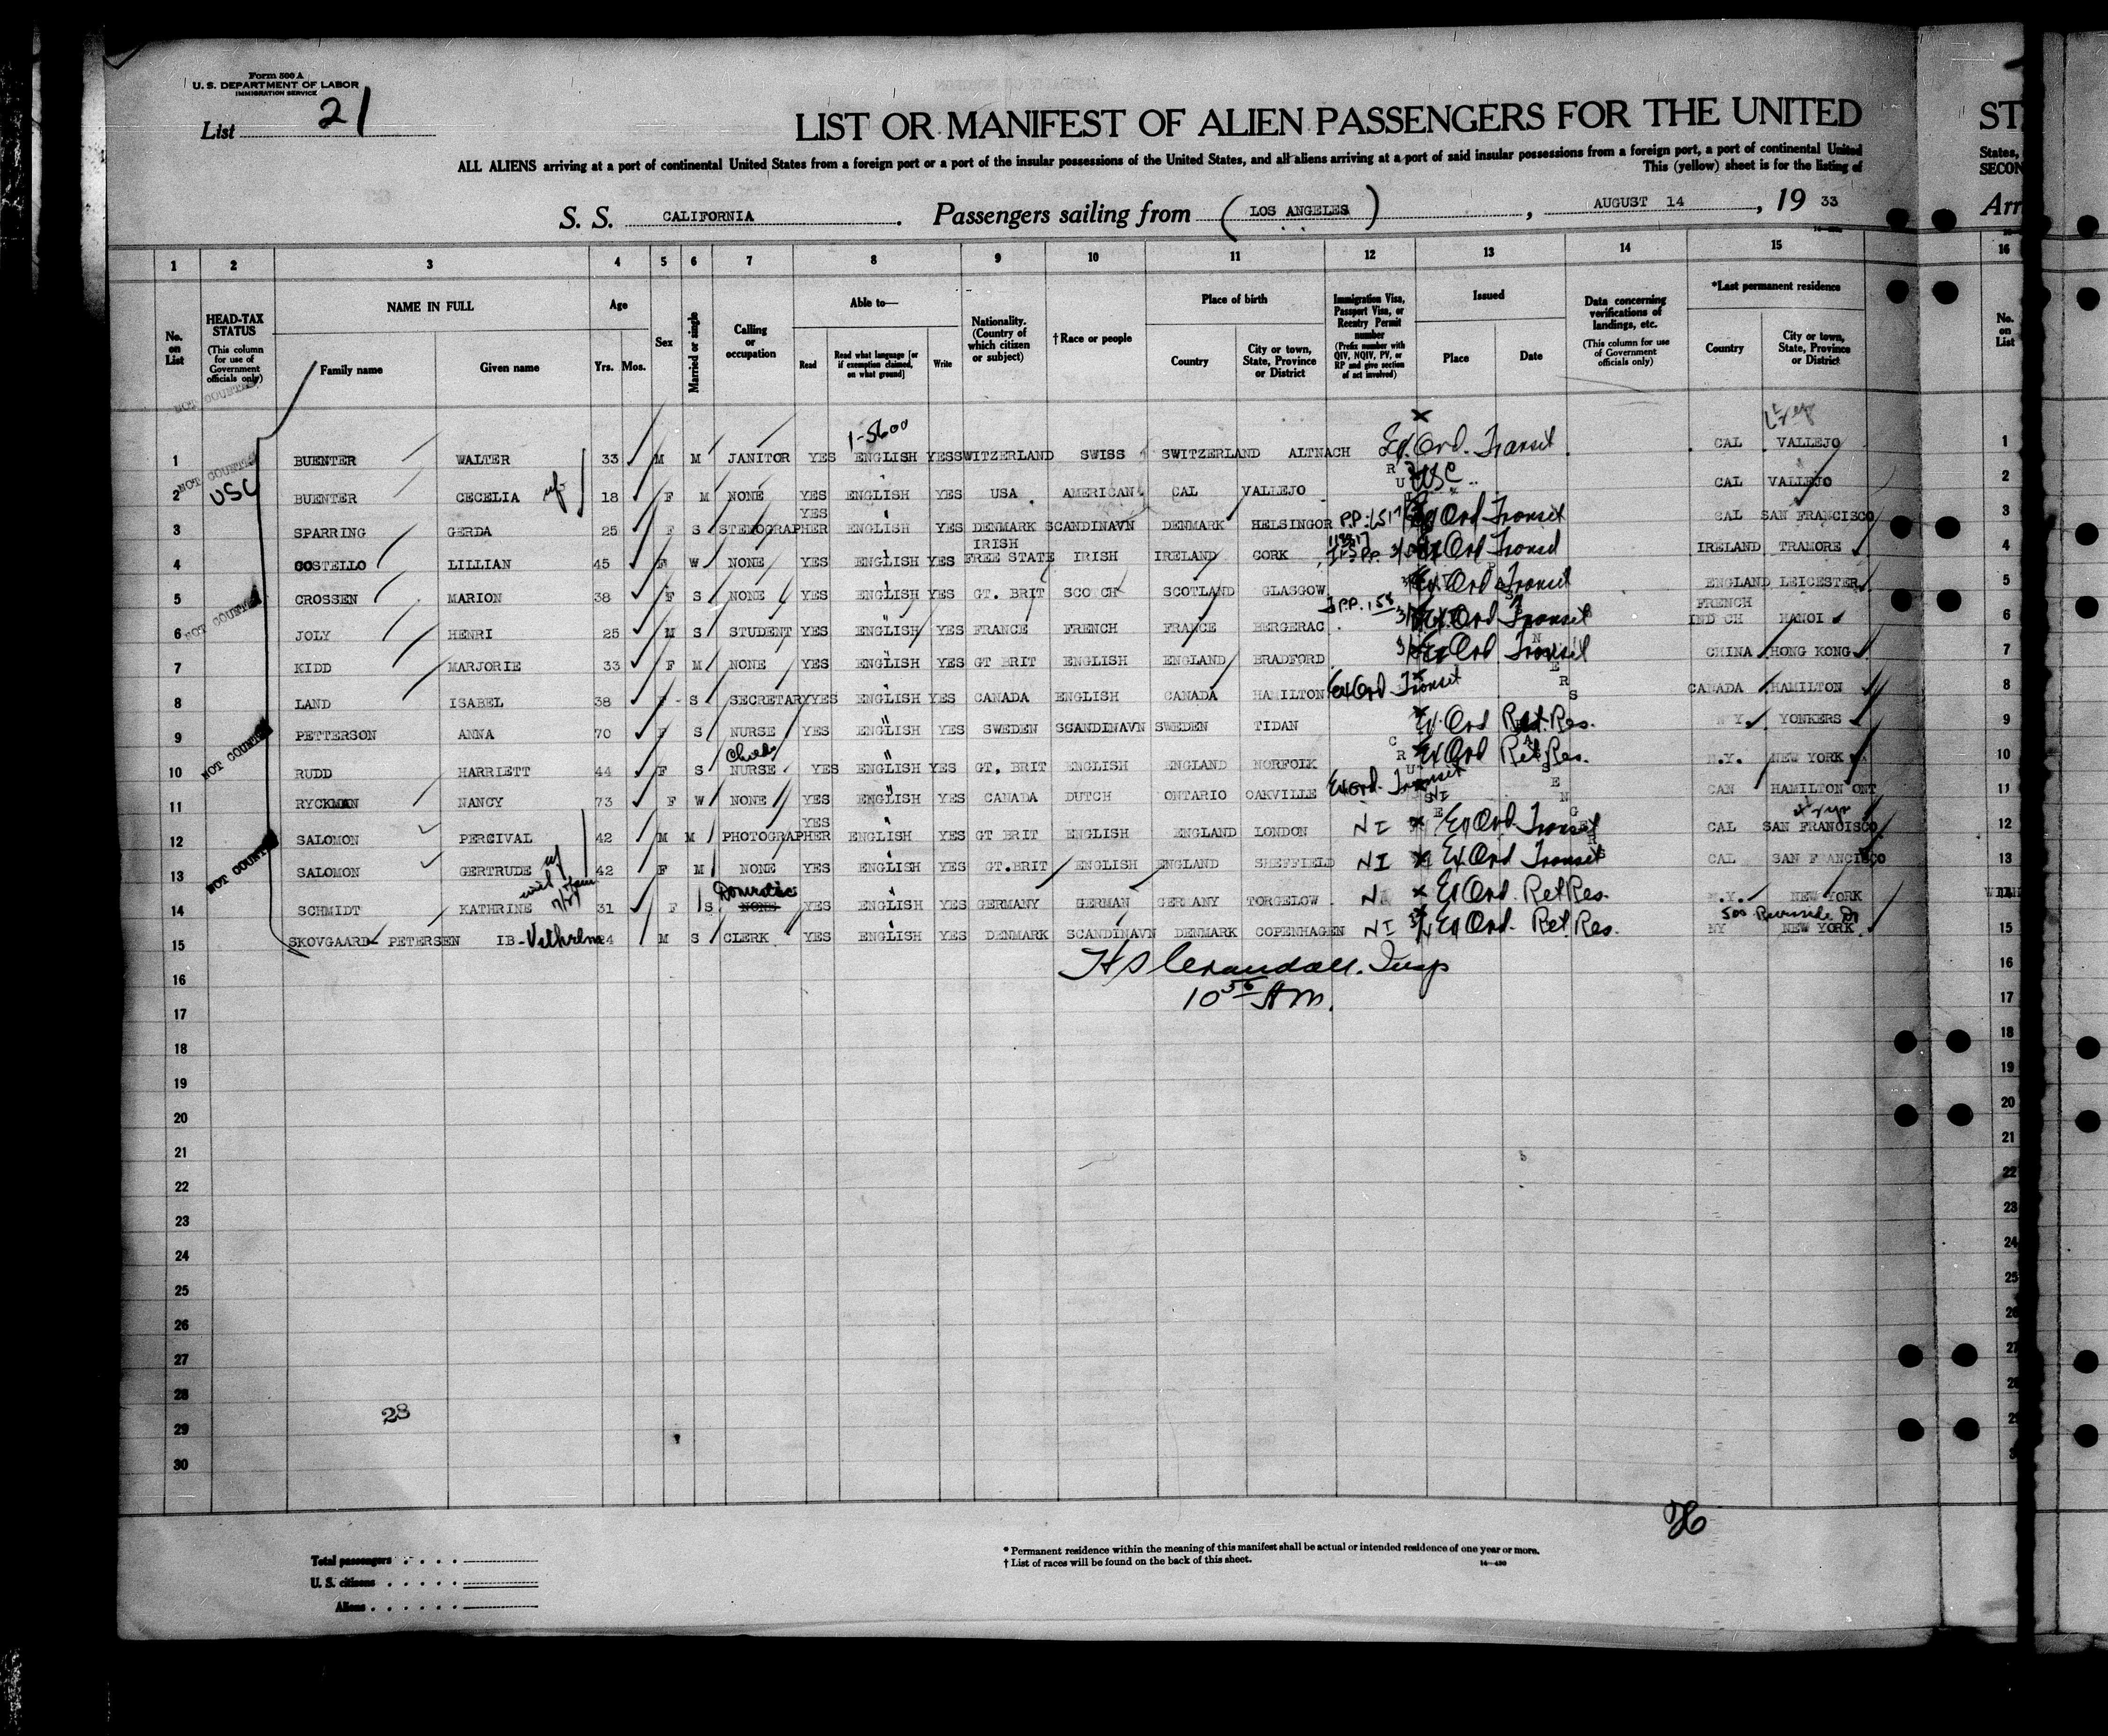 Form 500 A
U. S. DEPARTMENT OF LABOR
IMMIGRATION SERVICE
List 21
LIST OR MANIFEST OF ALIEN PASSENGERS FOR THE UNITED
ALL ALIENS arriving at a port of continental United States from a foreign port or a port of the insular possessions of the United States, and all aliens arriving at a port of said insular possessions from a foreign port, a port of continental United
This (yellow) sheet is for the listing of
S. S. CALIFORNIA. Passengers sailing from (LOS ANGELES), AUGUST 14, 19 33
ST
States,
SECON
Arr
1 2 3 4 5 6 7 8 9 10 11 12 13 14 15 16
No. on List
HEAD-TAX STATUS (This column for use of Government officials only)
NAME IN FULL
Family name Given name
Age
Yrs. Mos.
Sex
Married or single
Calling or occupation
Able to—
Read
Read what language [or if exemption claimed, on what ground]
Write
Nationality. (Country of which citizen or subject)
†Race or people
Place of birth
Country
City or town, State, Province or District
Immigration Visa, Passport Visa, or Reentry Permit number (Prefix number with QIV, NQIV, PV, or RP and give section of act involved)
Issued
Place Date
Data concerning verifications of landings, etc. (This column for use of Government officials only)
*Last permanent residence
Country
City or town, State, Province or District
No. on List
NOT COUNTED
1-5600
1 BUENTER WALTER 33 M M JANITOR YES ENGLISH YES SWITZERLAND SWISS SWITZERLAND ALTNACH Ex. Ord. Transit CAL VALLEJO 1
NOT COUNTED
2 USC BUENTER CECELIA wf 18 F M NONE YES ENGLISH YES USA AMERICAN CAL VALLEJO USC CAL VALLEJO 2
3 SPARRING GERDA 25 F S STENOGRAPHER YES ENGLISH YES DENMARK SCANDINAVN DENMARK HELSINGOR Ex Ord Transit CAL SAN FRANCISCO 3
4 COSTELLO LILLIAN 45 F W NONE YES ENGLISH YES IRISH FREE STATE IRISH IRELAND CORK Ex Ord Transit IRELAND TRAMORE 4
NOT COUNTED
5 CROSSEN MARION 38 F S NONE YES ENGLISH YES GT. BRIT SCOTCH SCOTLAND GLASGOW Ex Ord Transit ENGLAND LEICESTER 5
6 JOLY HENRI 25 M S STUDENT YES ENGLISH YES FRANCE FRENCH FRANCE BERGERAC Ex Ord Transit FRENCH IND CH HANOI 6
7 KIDD MARJORIE 33 F M NONE YES ENGLISH YES GT BRIT ENGLISH ENGLAND BRADFORD Ex Ord Transit CHINA HONG KONG 7
8 LAND ISABEL 38 F S SECRETARY YES ENGLISH YES CANADA ENGLISH CANADA HAMILTON Ex Ord Transit CANADA HAMILTON 8
NOT COUNTED
9 PETTERSON ANNA 70 F S NURSE YES ENGLISH YES SWEDEN SCANDINAVN SWEDEN TIDAN Ex. Ord Ret. Res. N Y. YONKERS 9
10 RUDD HARRIETT 44 F S Childs NURSE YES ENGLISH YES GT. BRIT ENGLISH ENGLAND NORFOLK Ex Ord Ret Res. N.Y. NEW YORK 10
11 RYCKMAN NANCY 73 F W NONE YES ENGLISH YES CANADA DUTCH ONTARIO OAKVILLE Ex Ord. Transit CAN HAMILTON ONT 11
12 SALOMON PERCIVAL 42 M M PHOTOGRAPHER YES ENGLISH YES GT BRIT ENGLISH ENGLAND LONDON NI Ex Ord Transit CAL SAN FRANCISCO 12
NOT COUNTED
13 SALOMON GERTRUDE wf 42 F M NONE YES ENGLISH YES GT.BRIT ENGLISH ENGLAND SHEFFIELD NI Ex Ord Transit CAL SAN FRANCISCO 13
14 SCHMIDT KATHRINE 31 F S Domestic NONE YES ENGLISH YES GERMANY GERMAN GERMANY TORGELOW Ex Ord. Ret Res. N.Y. NEW YORK 14
500 Riverside Dr
15 SKOVGAARD- PETERSEN IB-Vilhelm 24 M S CLERK YES ENGLISH YES DENMARK SCANDINAVN DENMARK COPENHAGEN NI Ex Ord. Ret Res. NY NEW YORK 15
16 H S Crandall. Insp 16
17 10 56 AM. 17
18 18
19 19
20 20
21 21
22 22
23 23
24 24
25 25
26 26
27 27
28 28
28
29 29
30
Total passengers
U. S. citizens
Aliens
* Permanent residence within the meaning of this manifest shall be actual or intended residence of one year or more.
† List of races will be found on the back of this sheet.
14—430